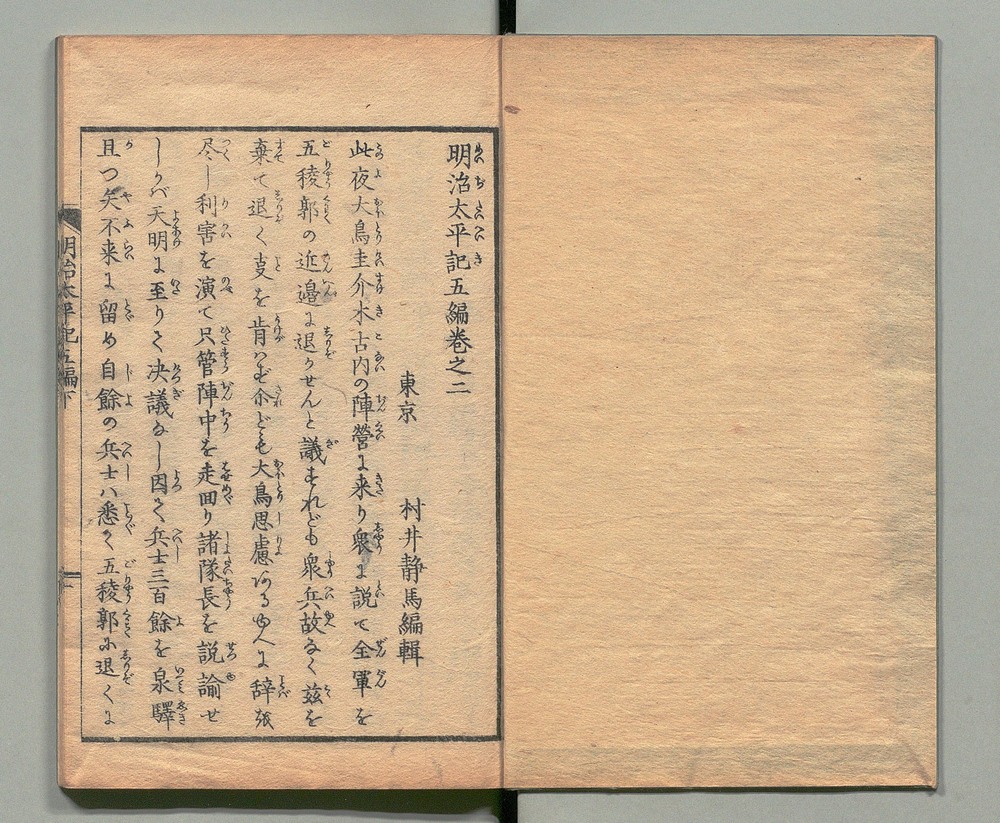 明治太平記五編巻之二
東京 村井静馬編輯
此夜大鳥圭介木古内の陣營に来り衆に説て全軍を
五稜郭の近邊に退かせんと議すれども衆兵故なく茲を
棄て退く支を肯はず尒ども大鳥思慮ある由へに辞を
尽し利害を演て只管陣中を走回り諸隊長を説諭せ
しかバ天明に至りて决議なし因て兵士三百餘を泉驛
且つ矢不来に留め自餘の兵士ハ悉く五稜郭に退くに
明治太平記五編下